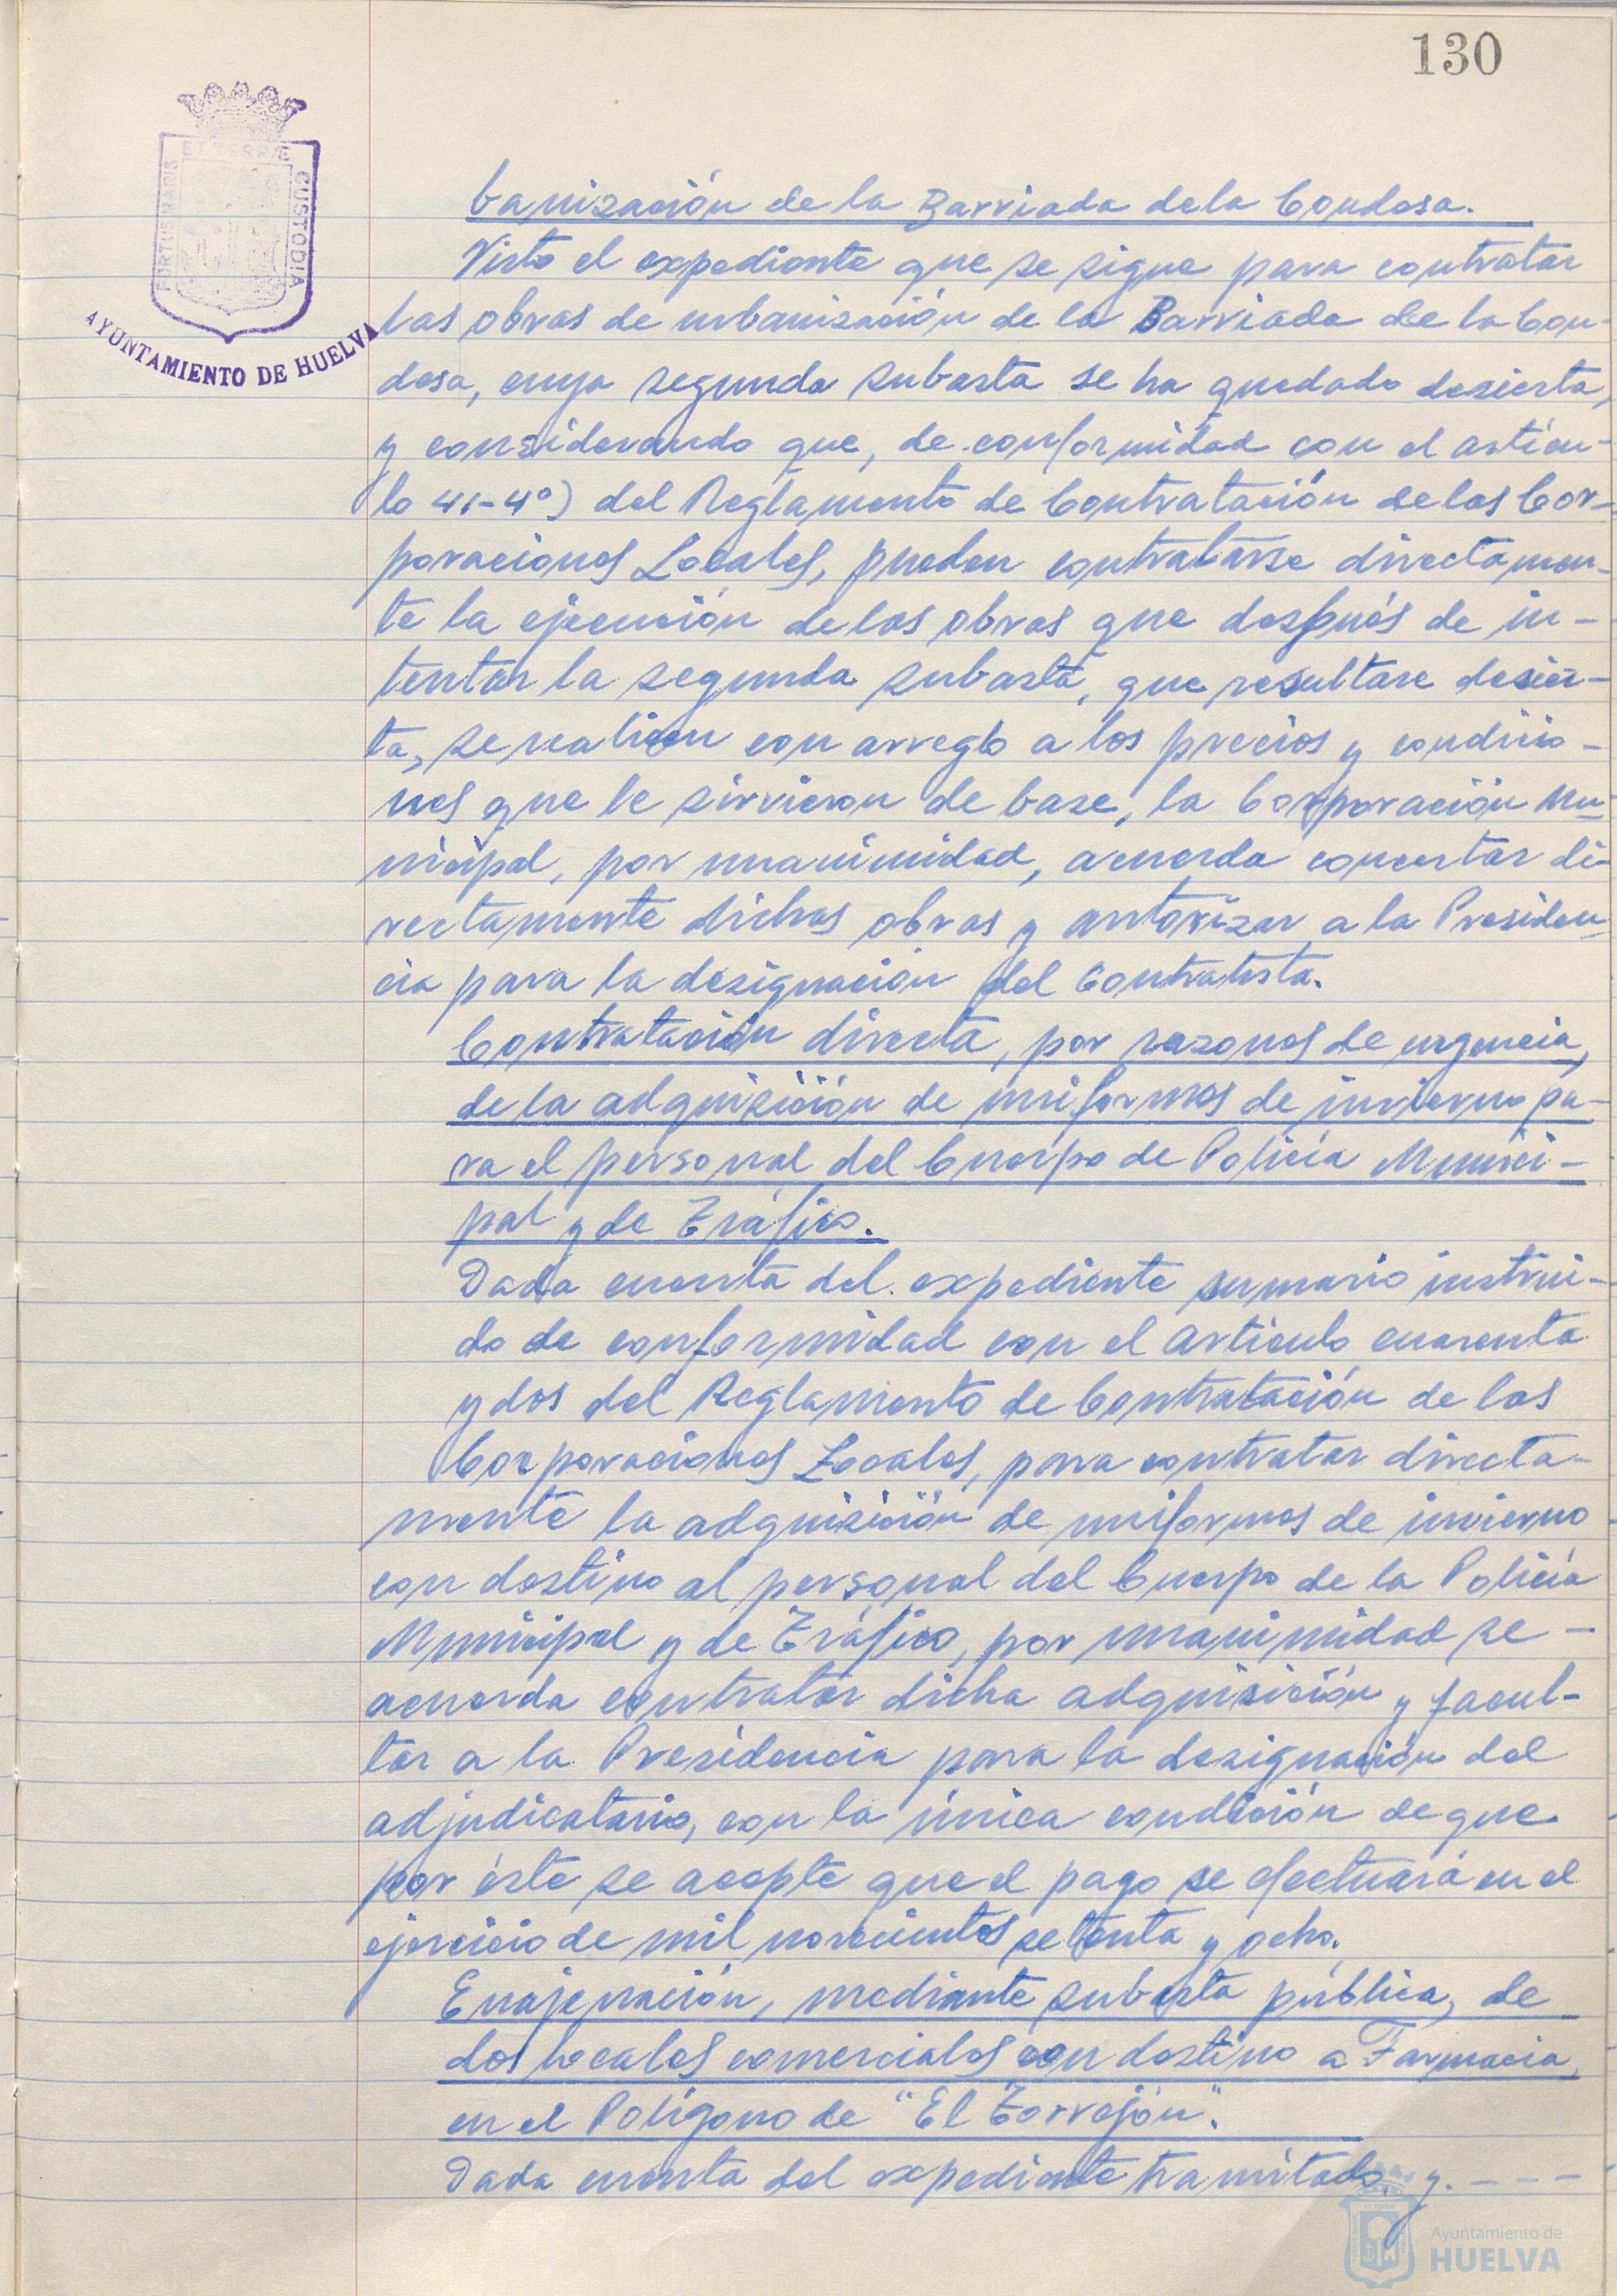 130
ET TERRÆ
PORTUS MARIS
CUSTODIA
AYUNTAMIENTO DE HUELVA
banización de la Barriada de la Condesa.
Visto el expediente que se sigue para contratar
las obras de urbanización de la Barriada de la Con-
desa, cuya segunda subasta se ha quedado desierta,
y considerando que, de conformidad con el artícu-
lo 41-4º) del Reglamento de Contratación de las Cor-
poraciones Locales, pueden contratarse directamen-
te la ejecución de las obras que después de in-
tentar la segunda subasta, que resultare desier-
ta, se realicen con arreglo a los precios y condicio-
nes que le sirvieron de base, la Corporación Mu-
nicipal, por unanimidad, acuerda concertar di-
rectamente dichas obras y autorizar a la Presiden-
cia para la designación del Contratista.
Contratación directa, por razones de urgencia,
de la adquisición de uniformes de invierno pa-
ra el personal del Cuerpo de Policía Munici-
pal y de Tráfico.
Dada cuenta del expediente sumario instrui-
do de conformidad con el artículo cuarenta
y dos del Reglamento de Contratación de las
Corporaciones Locales, para contratar directa-
mente la adquisición de uniformes de invierno
con destino al personal del Cuerpo de la Policía
Municipal y de Tráfico, por unanimidad se -
acuerda contratar dicha adquisición y facul-
tar a la Presidencia para la designación del
adjudicatario, con la única condición de que
por éste se acepte que el pago se efectuará en el
ejercicio de mil novecientos setenta y ocho.
Enajenación, mediante subasta pública, de
dos locales comerciales con destino a Farmacia,
en el Polígono de "El Torrejón".
Dada cuenta del expediente tramitado, y. - - -
Ayuntamiento de
HUELVA